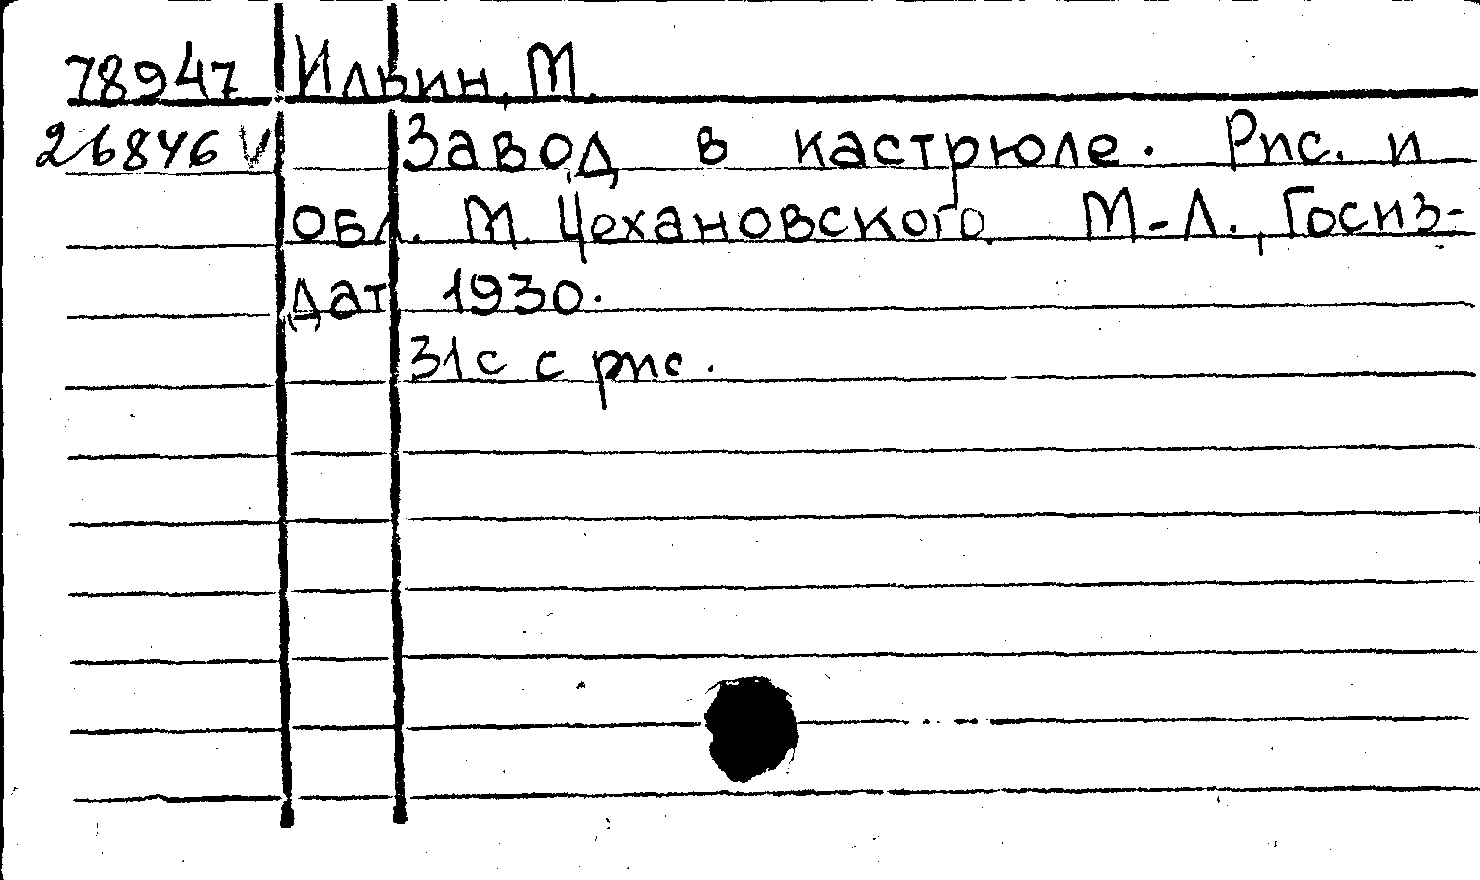 78947 Ильин, М.
26846 V Завод в кастрюле. Рис. и
обл. М. Цехановского. М-Л., Госиз-
дат 1930.
31с с рис.